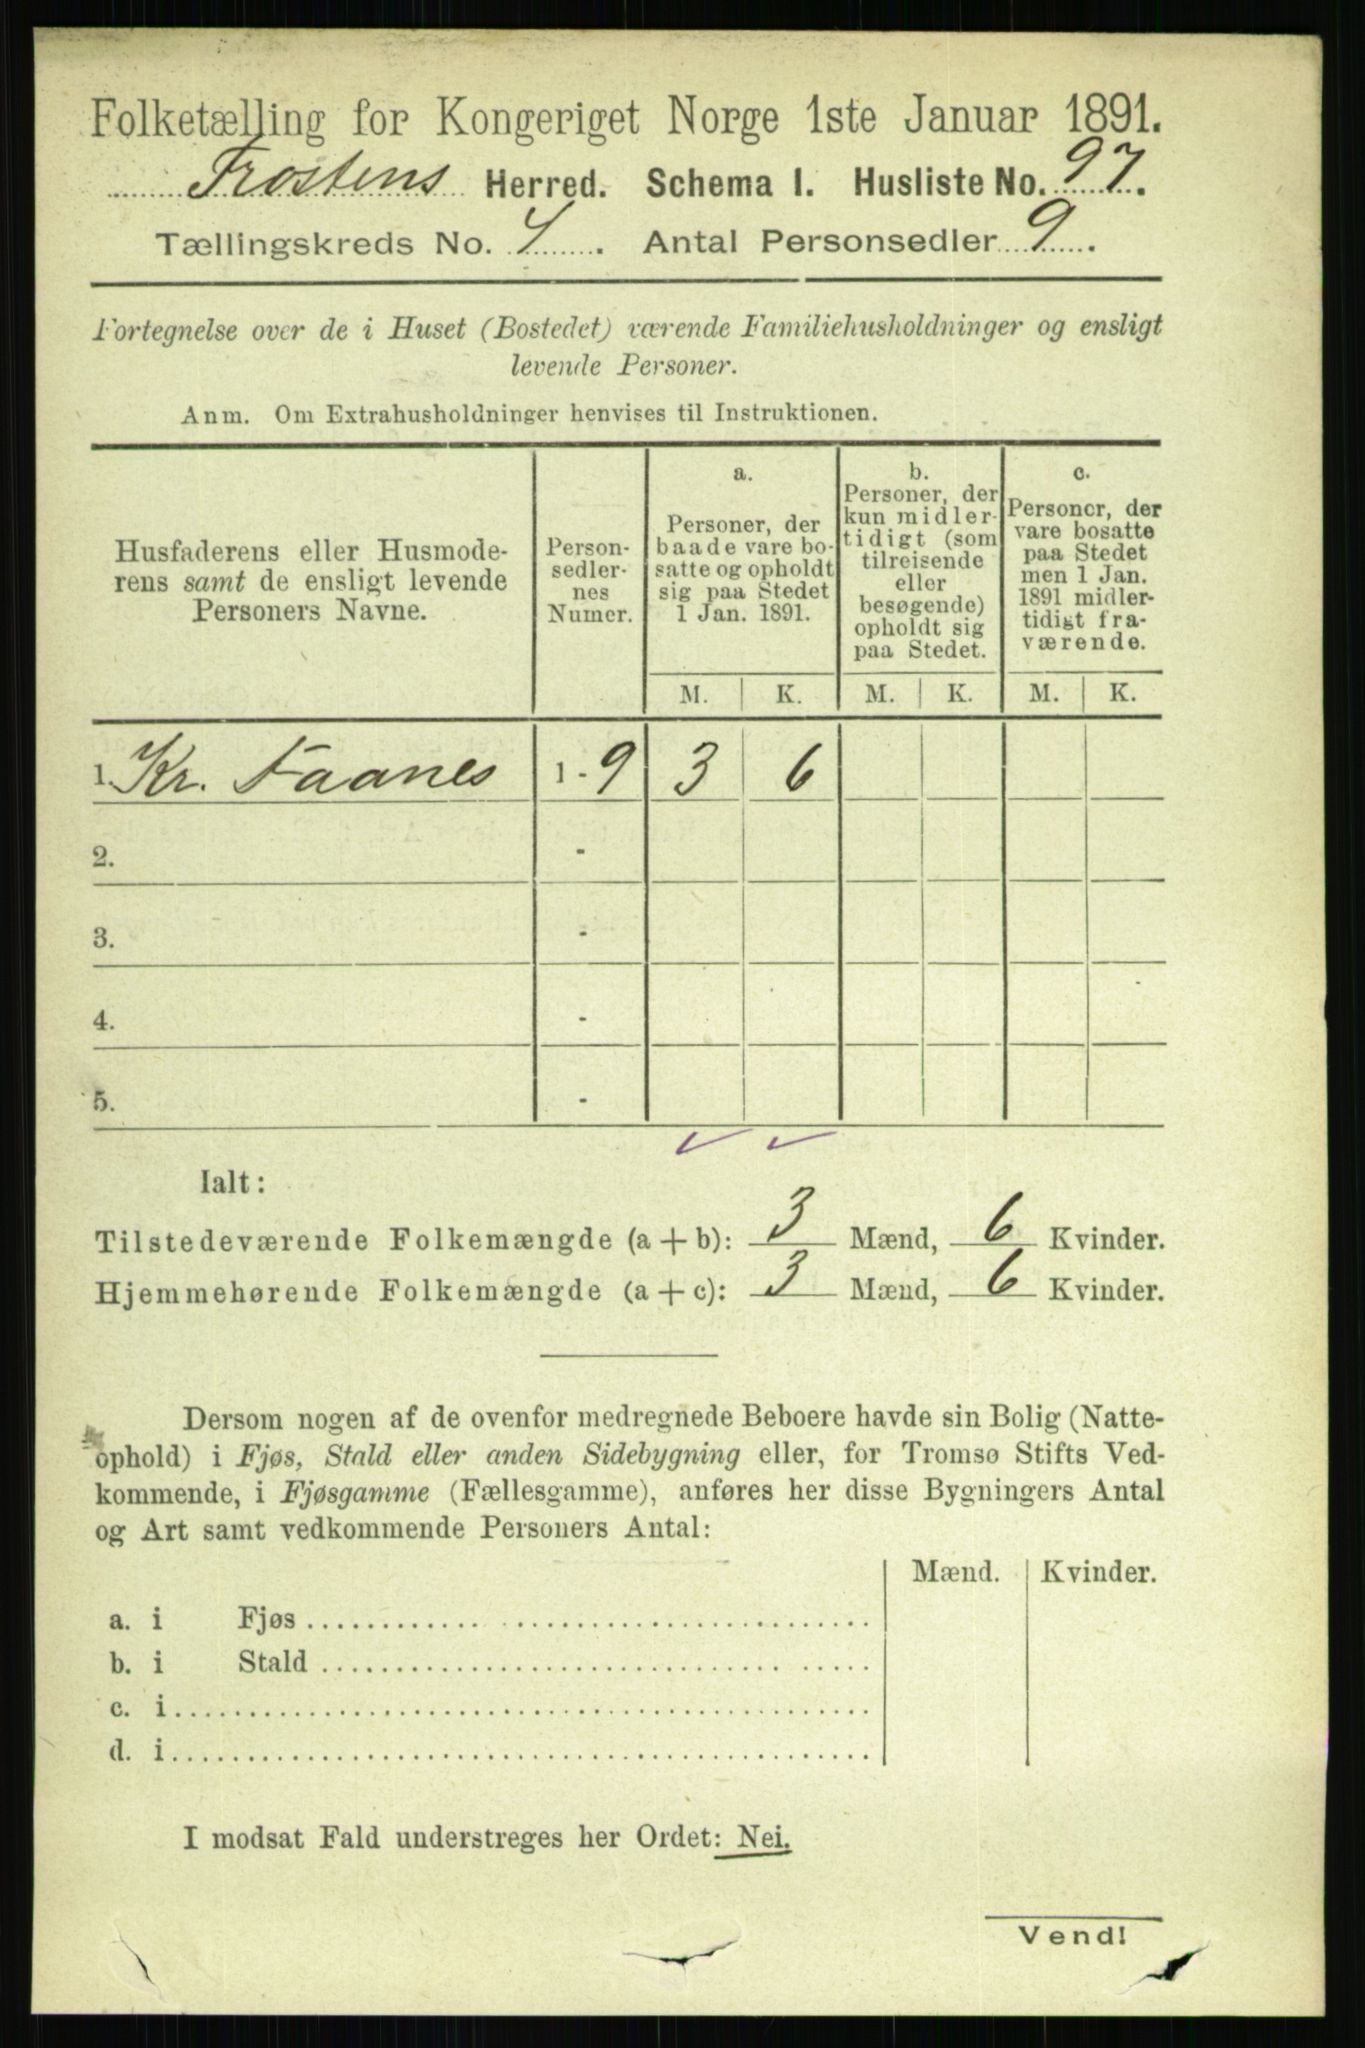 Folketælling for Kongeriget Norge 1ste Januar 1891.
Frostens Herred. Schema I. Husliste No. 97.
Tællingskreds No. 4. Antal Personsedler 9.
Fortegnelse over de i Huset (Bostedet) værende Familiehusholdninger og ensligt
levende Personer.
Anm. Om Extrahusholdninger henvises til Instruktionen.
Husfaderens eller Husmode-
rens samt de ensligt levende
Personers Navne.
Person-
sedler-
nes
Numer.
a.
Personer, der
baade vare bo-
satte og opholdt
sig paa Stedet
1 Jan. 1891.
b.
Personer, der
kun midler-
tidigt (som
tilreisende
eller
besøgende)
opholdt sig
paa Stedet.
c.
Personer, der
vare bosatte
paa Stedet
men 1 Jan.
1891 midler-
tidigt fra-
værende.
M. K. M. K. M. K.
1. Kr. Faanes 1 - 9 3 6
2. -
3. -
4. -
5. -
Ialt:
Tilstedeværende Folkemængde (a + b): 3 Mænd, 6 Kvinder.
Hjemmehørende Folkemængde (a + c): 3 Mænd, 6 Kvinder.
Dersom nogen af de ovenfor medregnede Beboere havde sin Bolig (Natte-
ophold) i Fjøs, Stald eller anden Sidebygning eller, for Tromsø Stifts Ved-
kommende, i Fjøsgamme (Fællesgamme), anføres her disse Bygningers Antal
og Art samt vedkommende Personers Antal:
Mænd. Kvinder.
a. i Fjøs
b. i Stald
c. i
d. i
I modsat Fald understreges her Ordet: Nei.
Vend!